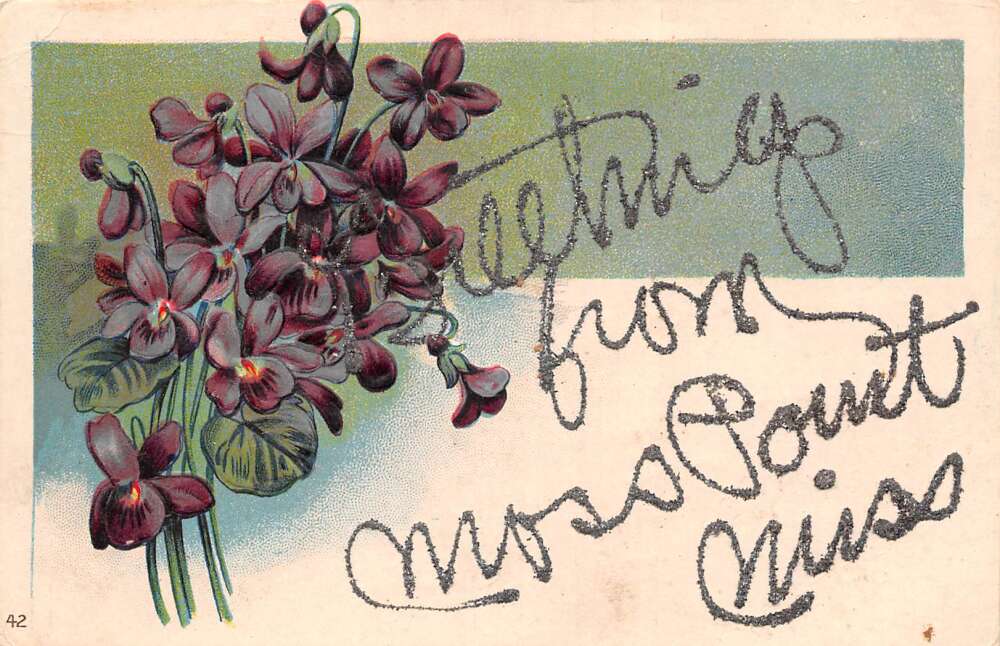 Greetings
from
Moss Point
Miss
42